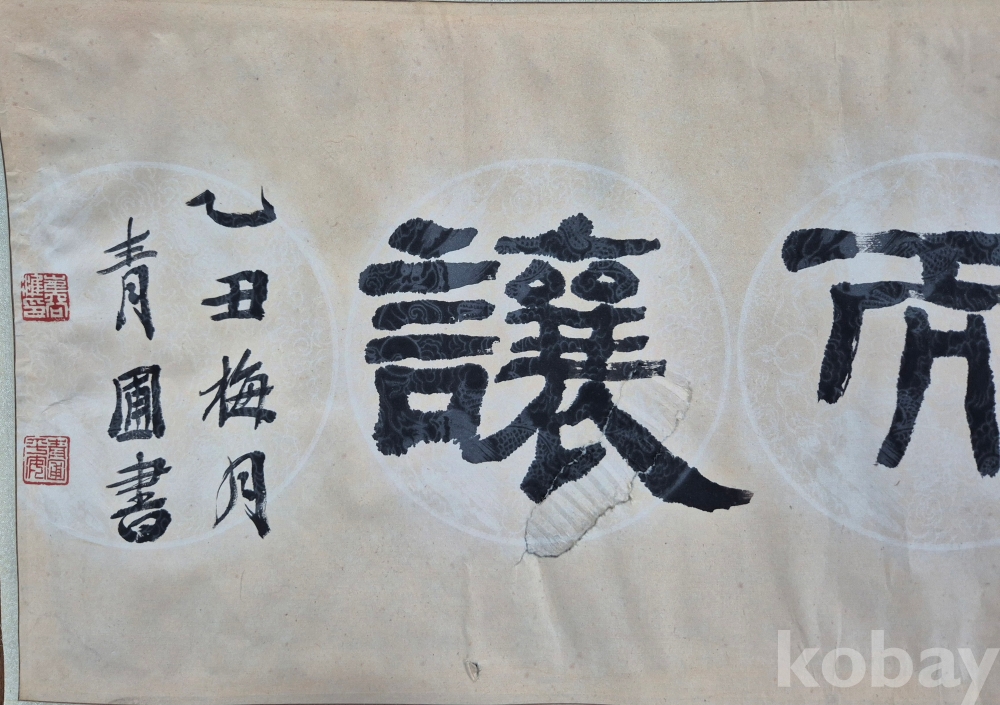 而讓
乙丑梅月
青圃書
kobay